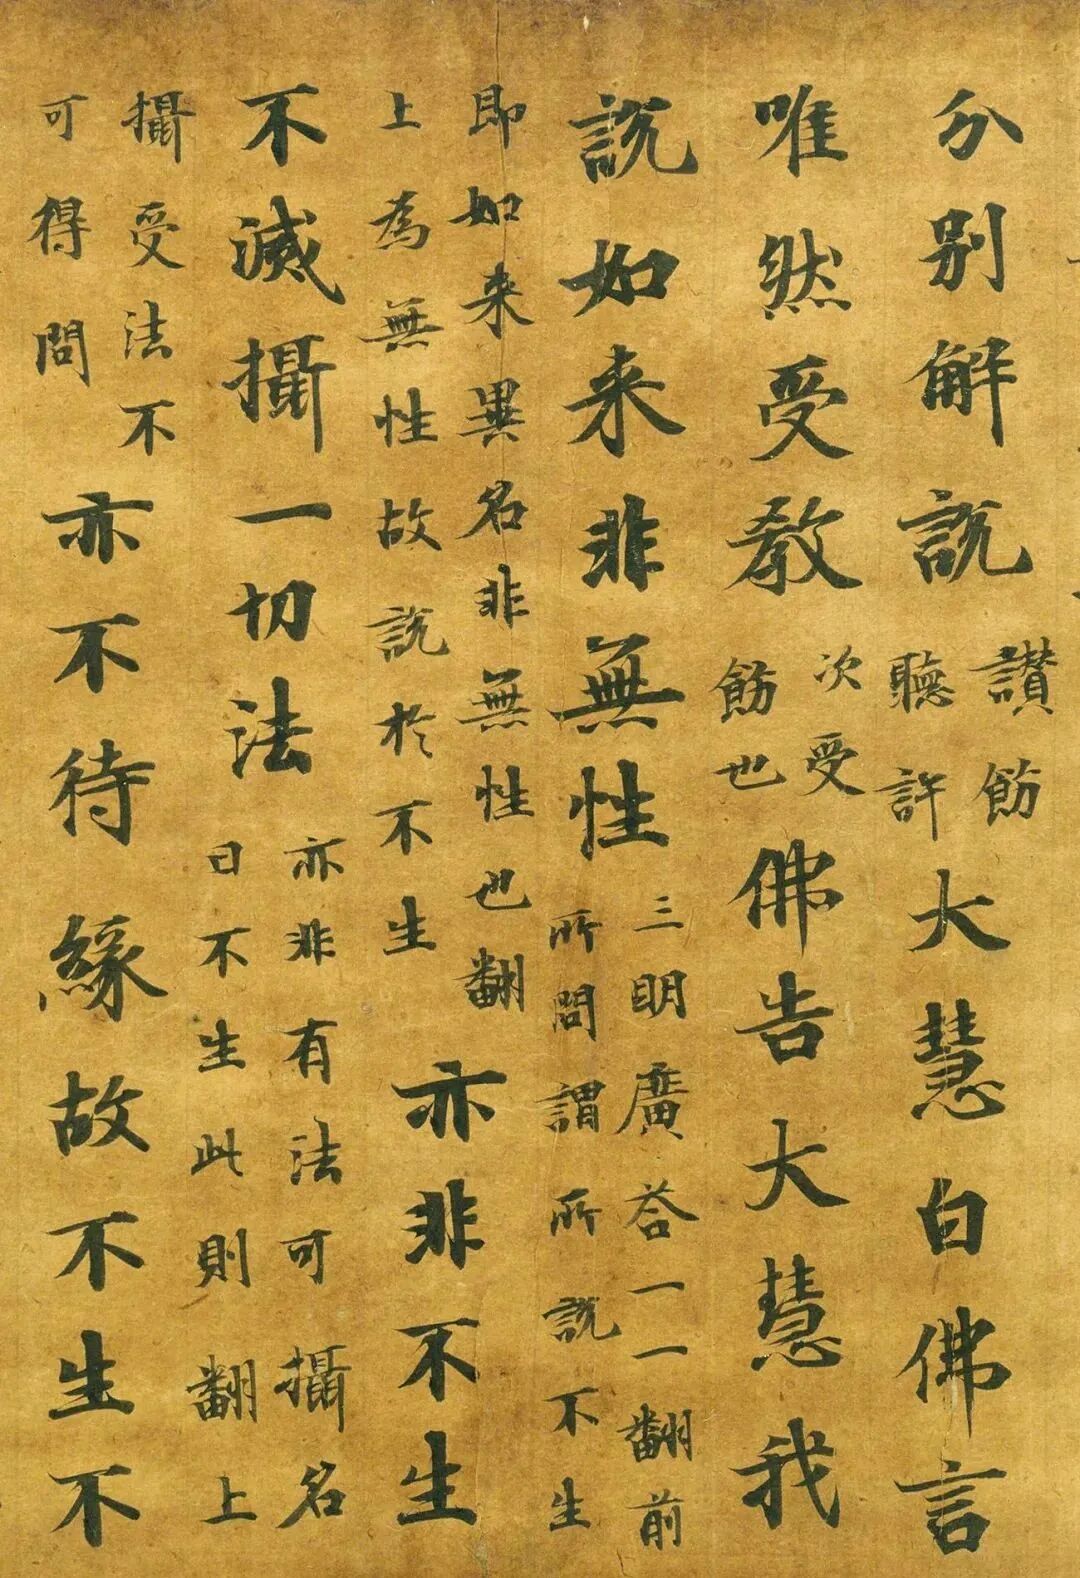 分別解說讃飭聽許大慧白佛言
唯然受教次受飭也佛告大慧我
說如来非無性三明廣荅一一翻前所問謂所說不生
即如来異名非無性也翻上為無性故說於不生亦非不生
不滅攝一切法亦非有法可攝名曰不生此則翻上
攝受法不可得問亦不待緣故不生不